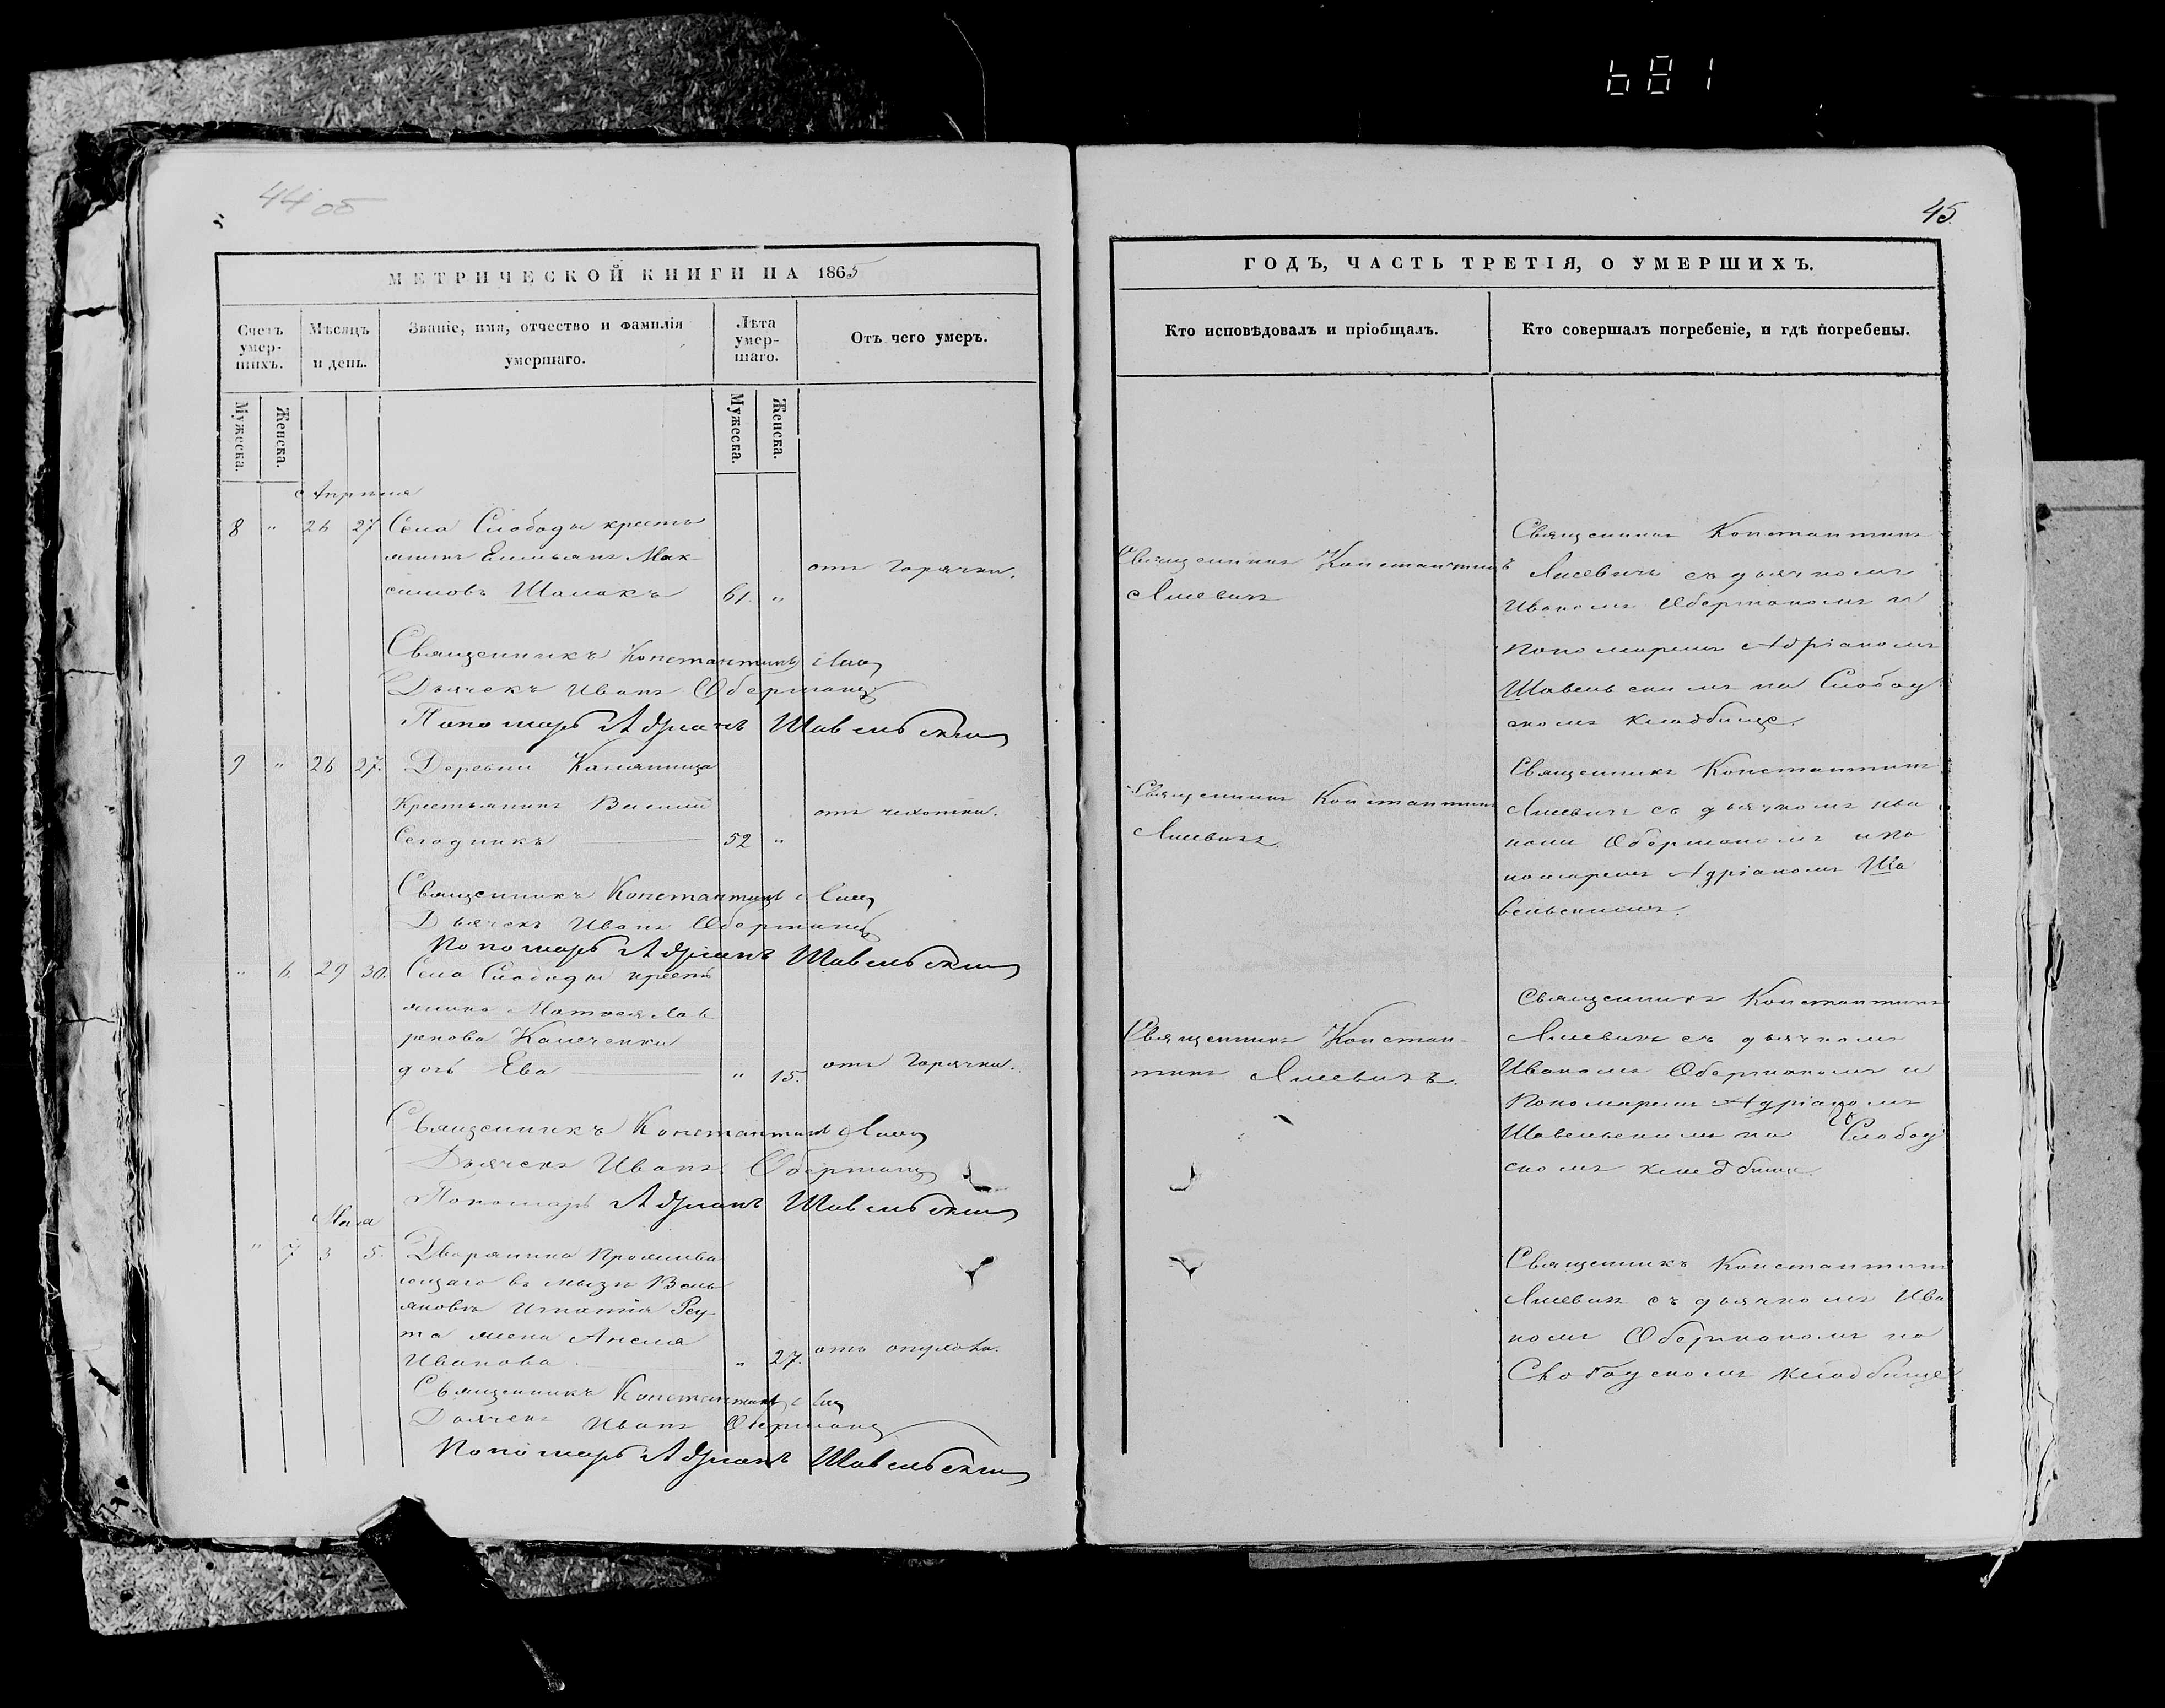 681
44 об
45.
МЕТРИЧЕСКОЙ КНИГИ НА 1865
ГОДЪ, ЧАСТЬ ТРЕТІЯ, О УМЕРШИХЪ.
Счетъ умер-шихъ.
Мѣсяцъ и день.
Званіе, имя, отчество и фамилія умершаго.
Лѣта умер-шаго.
Отъ чего умеръ.
Кто исповѣдовалъ и пріобщалъ.
Кто совершалъ погребеніе, и гдѣ погребены.
Мужеска.
Женска.
Мужеска.
Женска.
Апрѣля
8 " 26 27 Села Слободы кресть
янинъ Емильянъ Мак-
симовъ Шамакъ 61. "
отъ горячки.
Священникъ Константинъ
Дьячекъ Иванъ Оберманъ
Пономарь Адріанъ Шавельскій
Священникъ Константинъ
Лисевичъ
Священникъ Константинъ
Лисевичъ съ дьячкомъ
Иваномъ Оберманомъ и
пономаремъ Адріаномъ
Шавельскимъ на Слобод
скомъ кладбище.
9 " 26 27. Деревни
Крестьянинъ Василій
52 "
отъ чахотки.
Священникъ Константинъ
Дьячекъ Иванъ Оберманъ
Пономарь Адріанъ Шавельскій
Священникъ Константинъ
Лисевичъ.
Священникъ Константинъ
Лисевичъ съ дьячкомъ Ива
номъ Оберманомъ и по
номаремъ Адріаномъ Ша
вельскимъ.
" 6. 29 30. Села Слободы кресть
янина Матвея Лав
ренова
дочь Ева " 15.
отъ горячки.
Священникъ Константинъ
Дьячекъ Иванъ Оберманъ
Пономарь Адріанъ Шавельскій
Священникъ Констан-
тинъ Лисевичъ.
Священникъ Константинъ
Лисевичъ съ дьячкомъ
Иваномъ Оберманомъ и
Пономаремъ Адріаномъ
Шавельскимъ на Слобод
скомъ кладбище.
Мая
" 7 3 5. Дворянина прожива
ющаго въ мызѣ
Игнатія Реу-
та жена Анеля
Иванова. " 27.
отъ опухоли.
Священникъ Константинъ
Дьячекъ Иванъ Оберманъ
Пономарь Адріанъ Шавельскій
Священникъ Константинъ
Лисевичъ съ дьячкомъ Ива
номъ Оберманомъ на
Слободскомъ кладбище